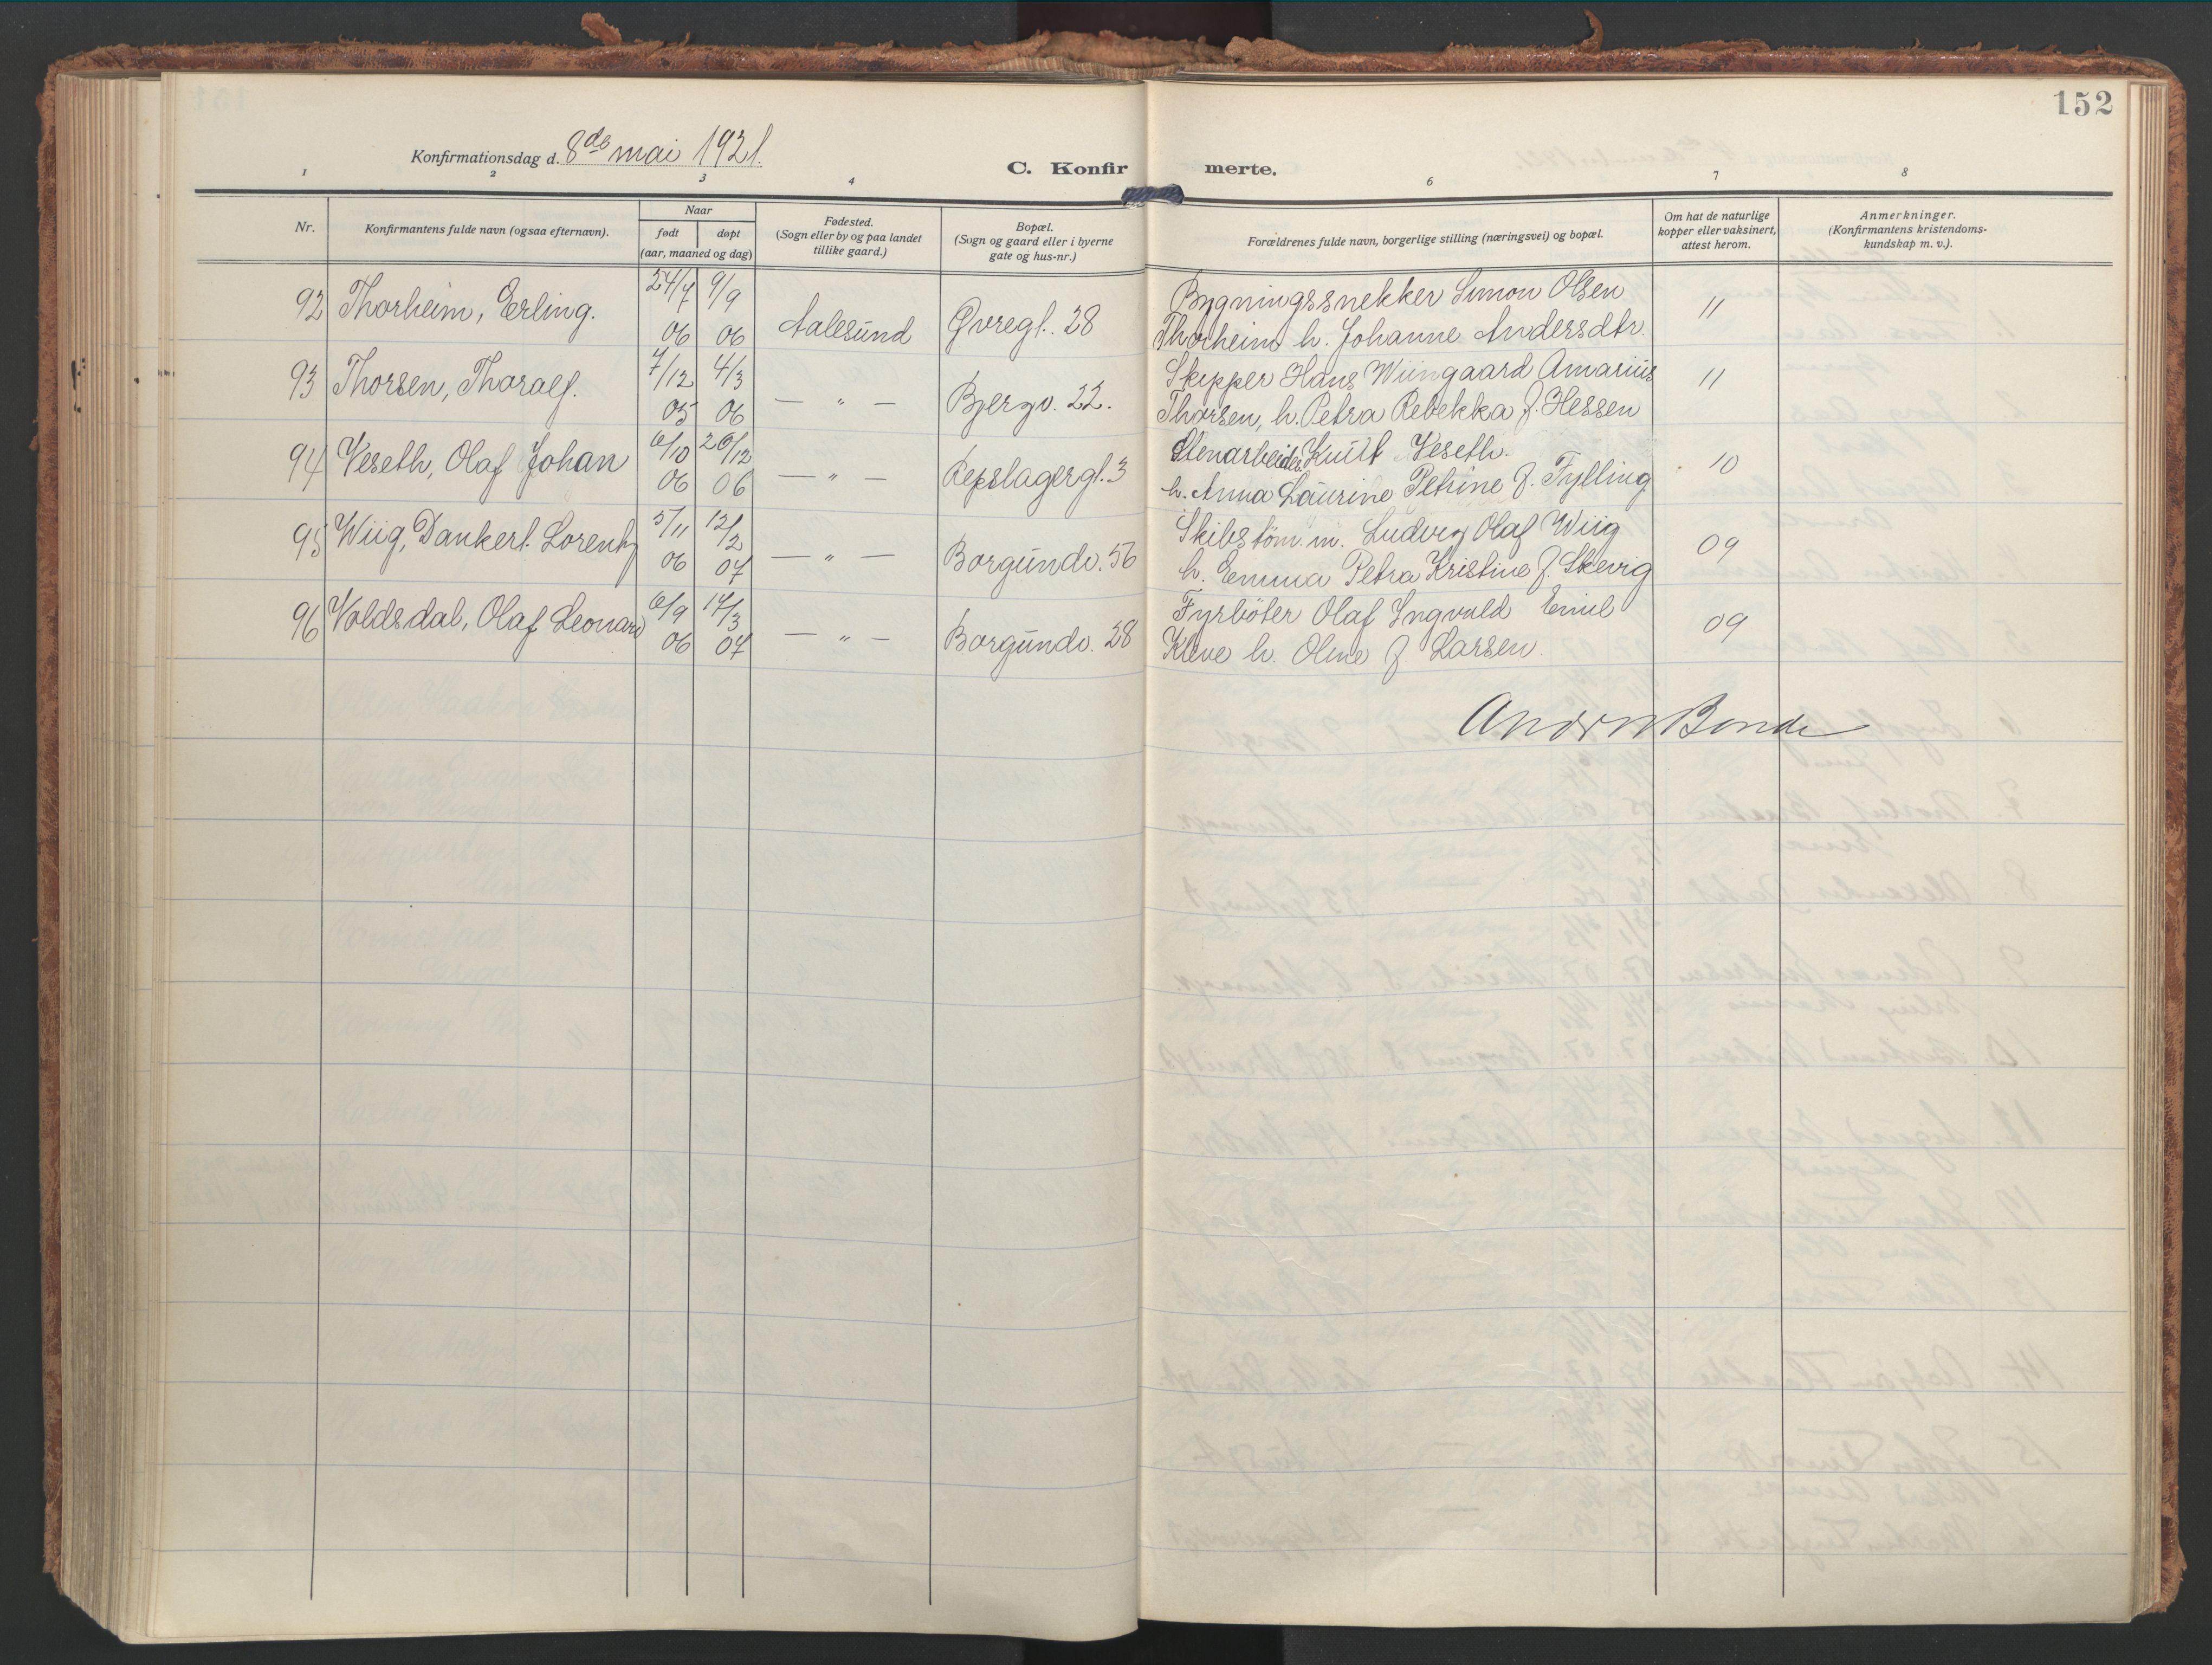 152
Konfirmationsdag d. 8de mai 1921.
C. Konfirmerte.
1 2 3 4 6 7 8
Nr.
Konfirmantens fulde navn (ogsaa efternavn).
Naar
født døpt
(aar, maaned og dag)
Fødested.
(Sogn eller by og paa landet
tillike gaard.)
Bopæl.
(Sogn og gaard eller i byerne
gate og hus-nr.)
Forældrenes fulde navn, borgerlige stilling (næringsvei) og bopæl.
Om hat de naturlige
kopper eller vaksinert,
attest herom.
Anmerkninger.
(Konfirmantens kristendoms-
kundskap m. v.).
92 Thorheim, Erling. 24/7 06 9/9 06 Aalesund Øvregt. 28 Bygningssnekker Simon Olsen 11
Thorheim h. Johanne Andersdtr.
93 Thorsen, Thoralf. 7/12 05 4/3 06 — " — Bjergv. 22. Skipper Hans Wiingaard Amarius 11
Thorsen, h. Petra Rebekka f. Hessen
94 Veseth, Olaf Johan 6/10 06 26/12 06 — " — Repslagergt. 3 Stenarbeider Knut Veseth. 10
h. Anna Laurine Petrine f. Fylling
95 Wiig, Dankert Lorentz 5/11 06 12/2 07 — " — Borgundv. 56 Skibstøm.m. Ludvig Olaf Wiig 09
h. Emma Petra Kristine f. Skevig
96 Voldsdal, Olaf Leonard 6/9 06 17/3 07 — " — Borgundv. 28 Fyrbøter Olaf Ingvald Emil 09
Kleve h. Oline f. Larsen.